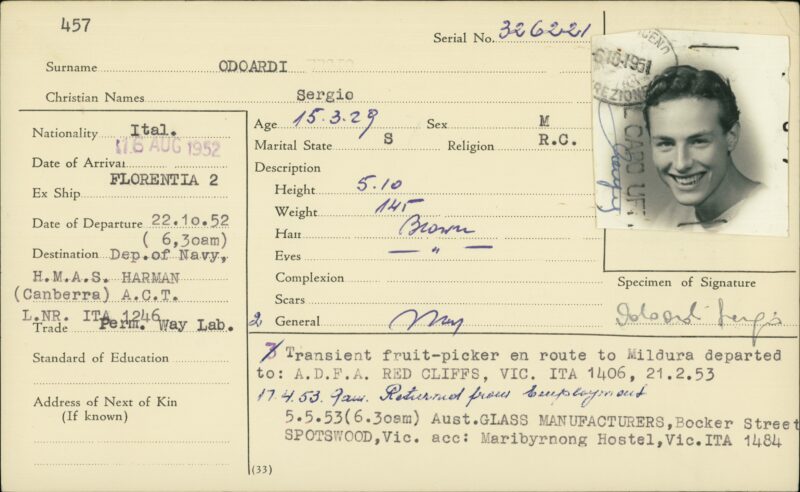 457
Serial No. 326221
Surname ODOARDI
Christian Names Sergio
Nationality Ital.
Date of Arrival 16 AUG 1952
Ex Ship FLORENTIA 2
Date of Departure 22.10.52
( 6,30am)
Destination Dep.of Navy,
H.M.A.S. HARMAN
(Canberra) A.C.T.
L.NR. ITA 1246
Trade Perm. Way Lab.
Standard of Education
Address of Next of Kin
(If known)
Age 15.3.29 Sex M
Marital State S Religion R.C.
Description
Height 5.10
Weight 145
Hair Brown
Eyes — " —
Complexion
Scars
2 General
6.10.1951
Specimen of Signature
Odoardi Sergio
Transient fruit-picker en route to Mildura departed
to: A.D.F.A. RED CLIFFS, VIC. ITA 1406, 21.2.53
17.4.53. Returned from Employment
5.5.53(6.30am) Aust.GLASS MANUFACTURERS,Bocker Street
SPOTSWOOD,Vic. acc: Maribyrnong Hostel,Vic.ITA 1484
(33)